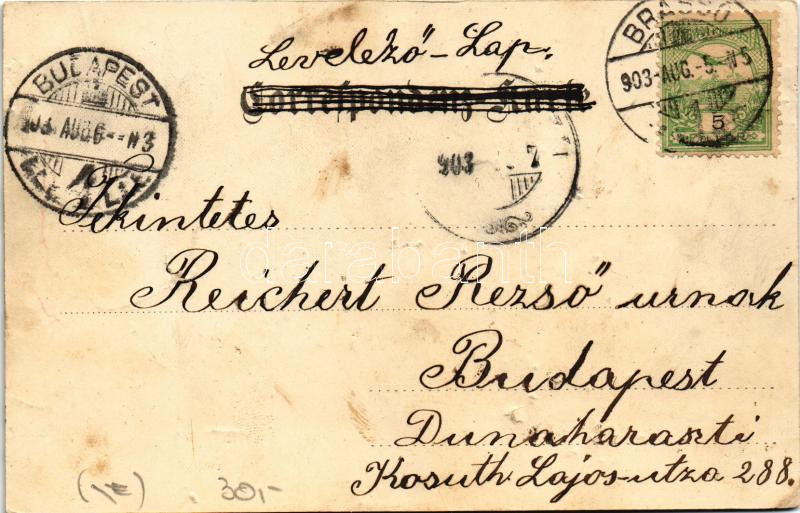 Levelező-Lap.
Correspondenz-Karte
BRASSÓ
903-AUG.-5.-N5
5
BUDAPEST
903 AUG 6--N3
903 7
Tekintetes
darabanth
Reichert Rezső urnak
Budapest
Dunaharaszti
Kosuth Lajos-utza 288.
30,-